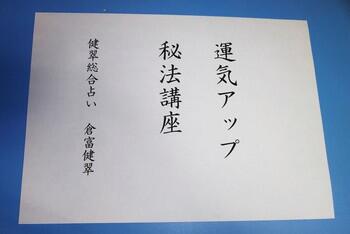 運気アップ
秘法講座
健翠総合占い　倉富健翠